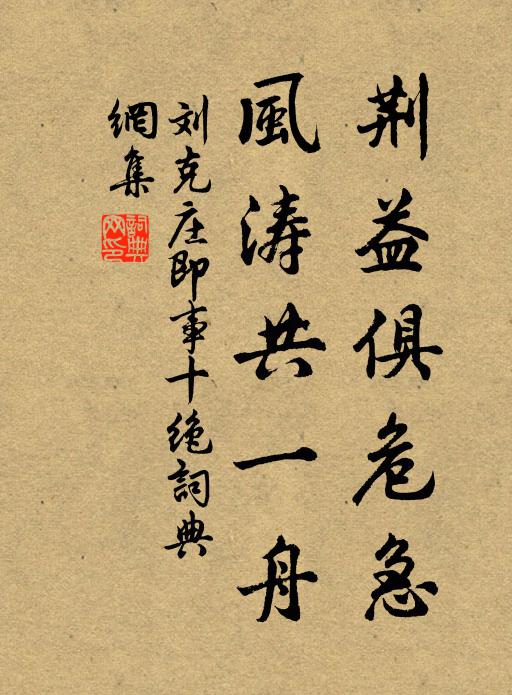 荆益俱危急
風涛共一舟
刘克庄即事十绝詞典
網集
詞典網印